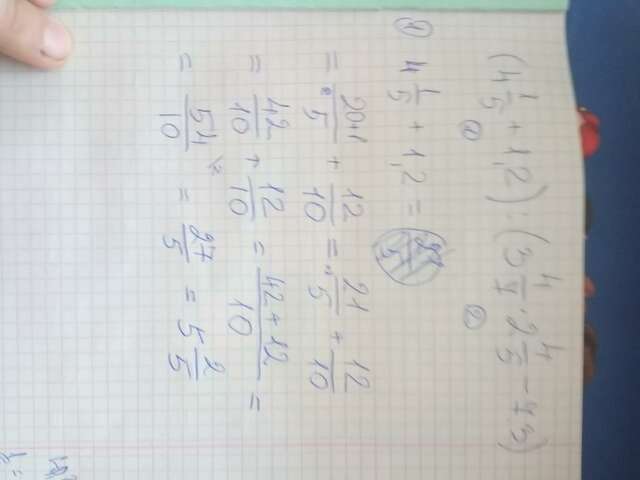 (4 1/5 + 1,2) : (3 4/7 · 2 4/5 - 7,3)
① ②
① 4 1/5 + 1,2 =
= 20+1/5 + 12/10 = 21/5 + 12/10
= 42/10 + 12/10 = 42+12/10 =
= 54/10 = 27/5 = 5 2/5